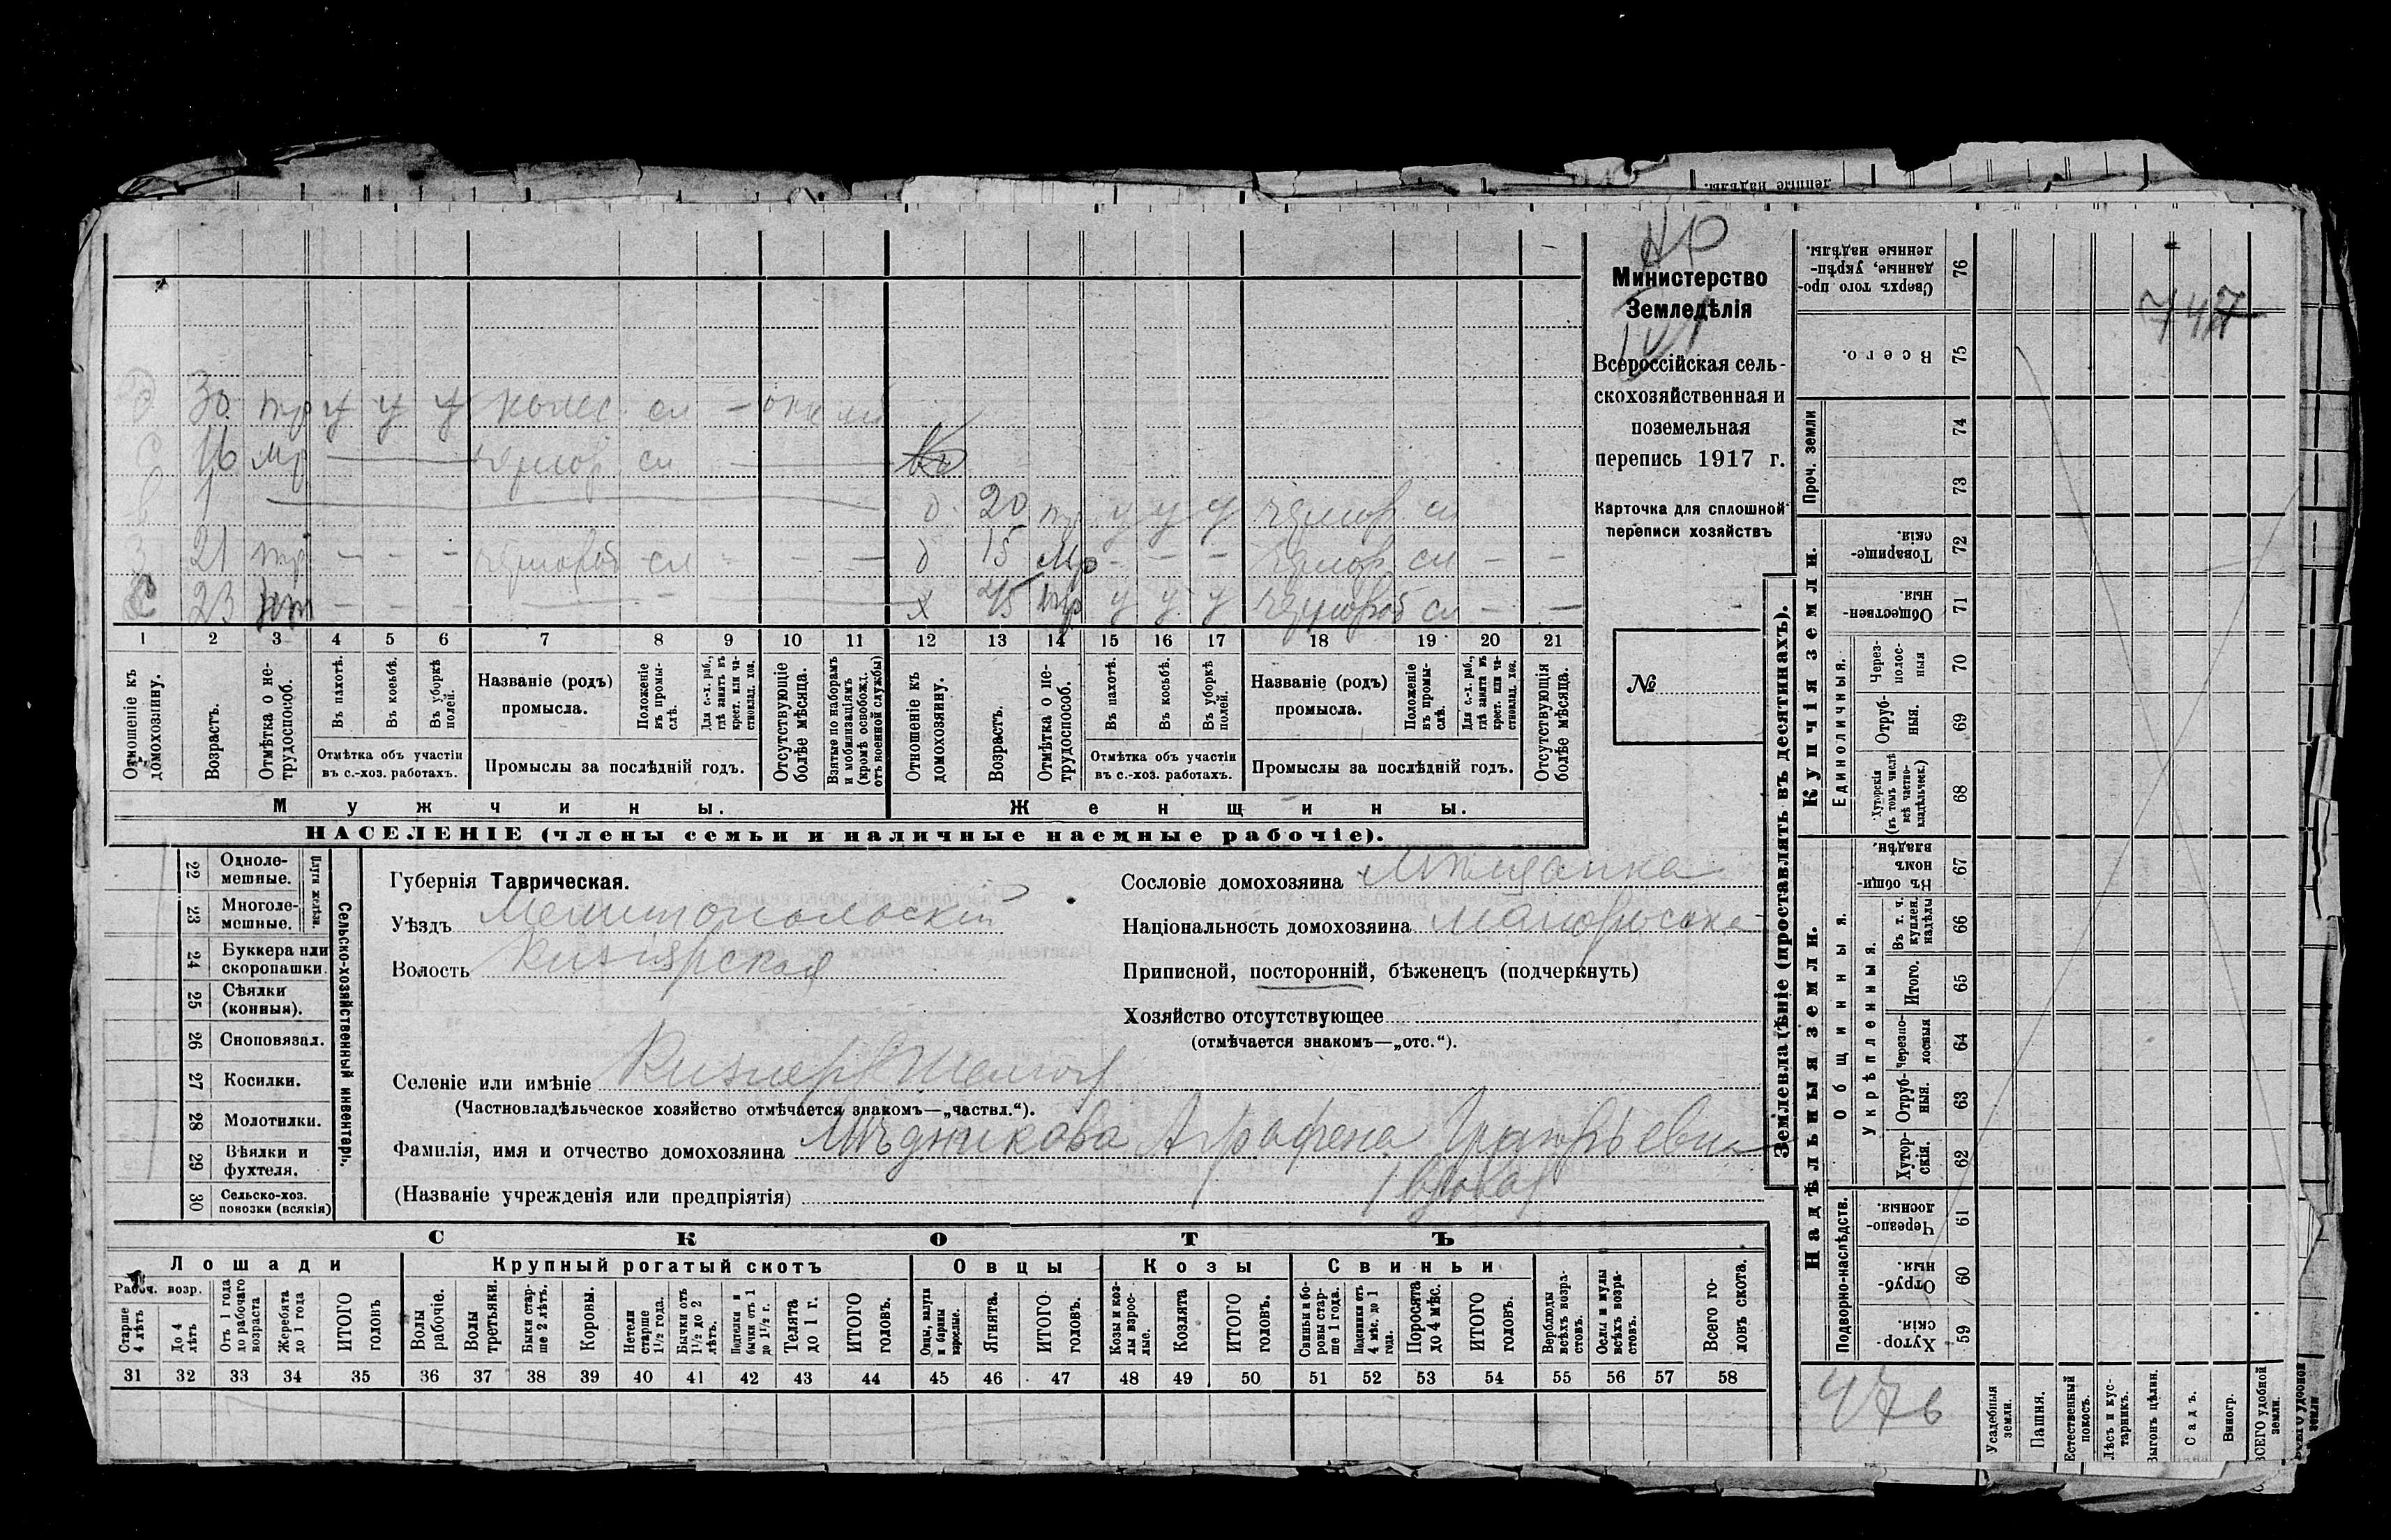 НР
Министерство
Земледѣлія
Всероссійская сель-
скохозяйственная и
поземельная
перепись 1917 г.
Карточка для сплошной
переписи хозяйствъ
№
747
30 тр у у у
16
1
20 у у у
21 тр - - - см - - -
д 15 - - - см - -
23 - - -
х 45 тр у у у см - -
1 2 3 4 5 6 7 8 9 10 11 12 13 14 15 16 17 18 19 20 21
Отношеніе къ домохозяину.
Возрастъ.
Отмѣтка о не-трудоспособ.
Въ пахотѣ.
Въ косьбѣ.
Въ уборкѣ полей.
Отмѣтка объ участіи
въ с.-хоз. работахъ.
Названіе (родъ)
промысла.
Положеніе въ промы-слѣ.
Для с.-х. раб., гдѣ занятъ въ крест. или ча-стновлад. хоз.
Промыслы за послѣдній годъ.
Отсутствующіе болѣе мѣсяца.
Взятые по наборамъ и мобилизаціямъ (кромѣ освобожд. отъ военной службы)
Отношеніе къ домохозяину.
Возрастъ.
Отмѣтка о не-трудоспособ.
Въ пахотѣ.
Въ косьбѣ.
Въ уборкѣ полей.
Отмѣтка объ участіи
въ с.-хоз. работахъ.
Названіе (родъ)
промысла.
Положеніе въ промы-слѣ.
Для с.-х. раб., гдѣ занята въ крест. или ча-стновлад. хоз.
Промыслы за послѣдній годъ.
Отсутствующія болѣе мѣсяца.
Мужчины.
Женщины.
НАСЕЛЕНІЕ (члены семьи и наличные наемные рабочіе).
Сельско-хозяйственный инвентарь.
Плуги желѣзн.
22 Одноле-мешные.
23 Многоле-мешные.
24 Буккера или скоропашки.
25 Сѣялки (конныя).
26 Сноповязал.
27 Косилки.
28 Молотилки.
29 Вѣялки и фухтеля.
30 Сельско-хоз. повозки (всякія)
Губернія Таврическая.
Уѣздъ Мелитопольскій
Волость Кизіярская
Селеніе или имѣніе
(Частновладѣльческое хозяйство отмѣчается знакомъ—„частвл.“).
Фамилія, имя и отчество домохозяина Мѣдникова Аграфена
(Названіе учрежденія или предпріятія) вдова
Сословіе домохозяина Мѣщанка
Національность домохозяина малоросска
Приписной, посторонній, бѣженецъ (подчеркнуть)
Хозяйство отсутствующее
(отмѣчается знакомъ—„отс.“).
СКОТЪ
Лошади
Крупный рогатый скотъ
Овцы
Козы
Свиньи
Рабоч. возр.
Старше 4 лѣтъ
До 4 лѣтъ
Отъ 1 года до рабочаго возраста
Жеребята до 1 года
ИТОГО головъ
Волы рабочіе.
Волы третьяки.
Быки стар-ше 2 лѣтъ.
Коровы.
Нетели старше 1½ года.
Бычки отъ 1½ до 2 лѣтъ.
Подтелки и бычки отъ 1 до 1½ г.
Телята до 1 г.
ИТОГО головъ.
Овцы, валухи и бараны взрослые.
Ягнята.
ИТОГО головъ.
Козы и коз-лы взрос-лые.
Козлята
ИТОГО головъ.
Свиньи и бо-ровы стар-ше 1 года.
Подсвинки отъ 4 мѣс. до 1 года.
Поросята до 4 мѣс.
ИТОГО головъ.
Верблюды всѣхъ возра-стовъ.
Ослы и мулы всѣхъ возра-стовъ.
Всего го-ловъ скота.
31 32 33 34 35 36 37 38 39 40 41 42 43 44 45 46 47 48 49 50 51 52 53 54 55 56 57 58
Землевладѣніе (проставлять въ десятинахъ).
Сверхъ того про-данные, укрѣп-ленные надѣлы. 76
Всего. 75
Проч. земли
74
73
Купчія земли.
Товарище-скія. 72
Обществен-ныя. 71
Единоличныя.
Через-полос-ныя 70
Отруб-ныя. 69
Хуторскія (въ томъ числѣ всѣ частно-владѣльческ.) 68
Надѣльныя земли.
Общинныя.
Въ общин-номъ владѣн. 67
Укрѣпленныя.
Въ т. ч. куплен. надѣлы 66
Итого. 65
Черезпо-лосныя 64
Отруб-ныя. 63
Хутор-скія. 62
Подворно-наслѣдств.
Черезпо-лосныя. 61
Отруб-ныя. 60
Хутор-скія. 59
47в
Усадебныя земли.
Пашня.
Естественный покосъ.
Лѣсъ и кус-тарникъ.
Выгонъ цѣлин.
Садъ.
Виногр.
ВСЕГО удобной земли.